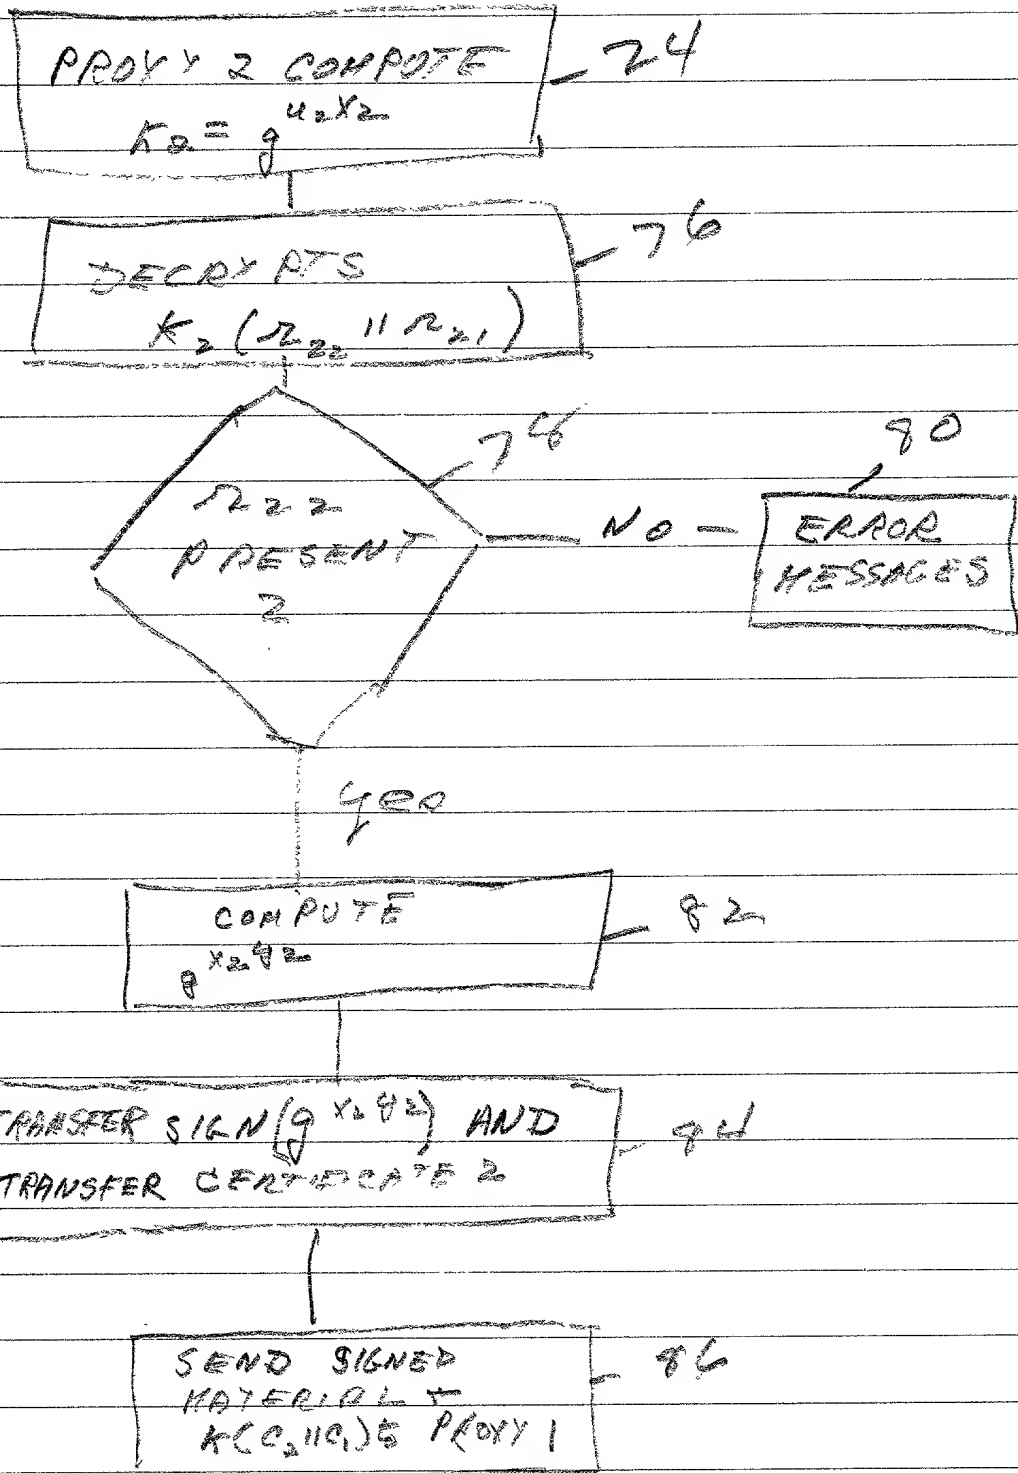 PROXY 2 COMPUTE
K₂ = g^u₂x₂
74
DECRYPTS
K₂(r₂₂ || r₂₁)
76
r₂₂
PRESENT
?
78
NO
80
ERROR
MESSAGES
yes
COMPUTE
g^x₂y₂
82
TRANSFER SIGN(g^x₂y₂) AND
TRANSFER CERTIFICATE 2
84
SEND SIGNED
MATERIAL +
K(C₂||C₁) to PROXY 1
86